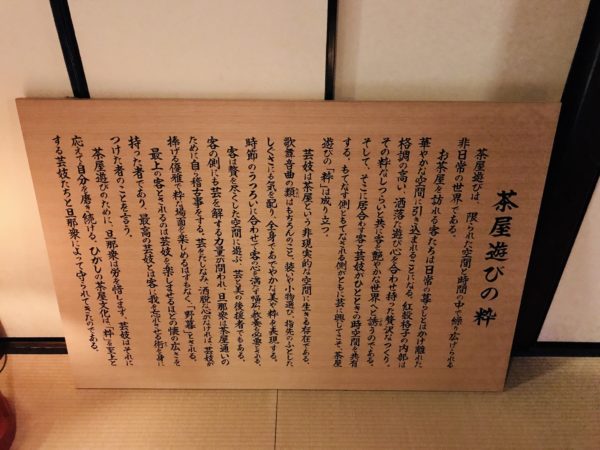 茶屋遊びの粋
茶屋遊びは、限られた空間と時間の中で繰り広げられる
非日常の世界である。
お茶屋を訪れる客たちは日常の暮らしとはかけ離れた
華やかな空間に引き込まれることになる。紅殻格子の内部は
格調の高い、洒落た遊び心を合わせ持った贅沢なつくり。
その粋なしつらいと共に客を艶やかな世界へと誘うのである。
そして、そこに居合わす客と芸妓がひとときの時空間を共有
する。もてなす側ともてなされる側がともに芸に興じてこそ、茶屋
遊びの「粋」は成り立つ。
芸妓は茶屋という非現実的な空間に生きる存在である。
歌舞音曲の類はもちろんのこと、装いや小物選び、指先のふとした
しぐさにも気を配り、全身であでやかな美や粋を表現する。
時節のうつろいに合わせて客の心を満たす幅広い教養も必要とされる。
客は贅を尽くした空間に遊ぶ、芸と美の後援者でもある。
客の側にも芸を解する力量が問われ、旦那衆は茶屋通いの
ために自ら稽古事をする。芸をたしなみ、洒脱な心がなければ、芸妓が
捧げる優雅で粋な場面を楽しめるはずもなく、「野暮」とされる。
最上の客とされるのは芸妓をも楽しませるほどの懐の広さを
持った者であり、最高の芸妓とは客に我を忘れさせる術を身に
つけた者のことを言う。
茶屋遊びのために、旦那衆は労を惜します、芸妓はそれに
応えて自分を磨き続ける。ひがしの茶屋文化は「粋」を至上と
する芸妓たちと旦那衆によって守られてきたのである。